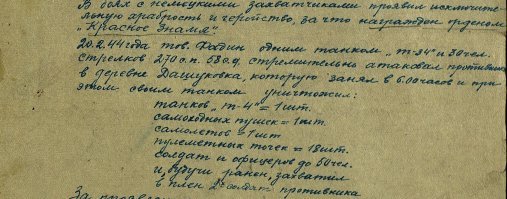 В боях с немецкими захватчиками проявил исключите-
льную храбрость и геройство, за что награжден орденом
„Красное Знамя"
20.2.44 года тов. Фадин одним танком „Т-34" и 30 чел.
стрелков 270 с.п. 58 с.д. стремительно атаковал противника
в деревне Дашуковка, которую занял в 6.00 часов и при
этом своим танком уничтожил:
танков „Т-4" = 1 шт.
самоходных пушек = 1 шт.
самолетов = 1 шт
пулеметных точек = 18 шт.
солдат и офицеров до 50 чел.
и, будучи ранен, захватил
в плен 2х солдат противника
За